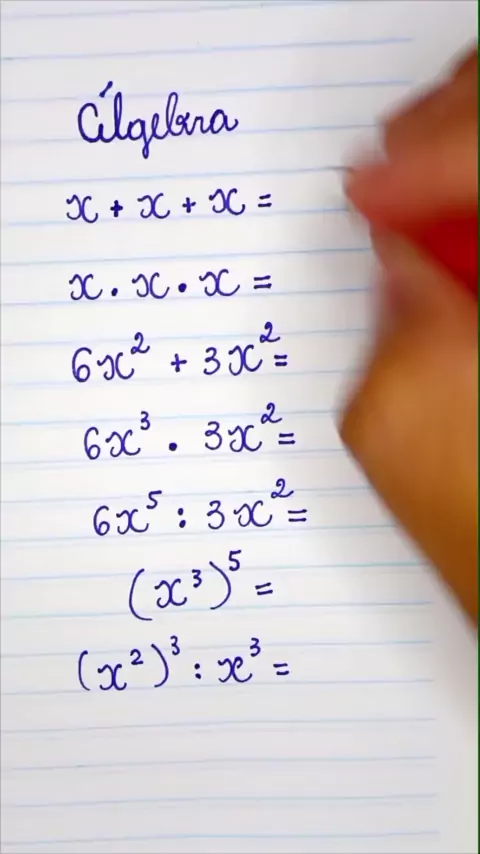 Álgebra
x + x + x =
x . x . x =
6x² + 3x² =
6x³ . 3x² =
6x⁵ : 3x² =
(x³)⁵ =
(x²)³ : x³ =